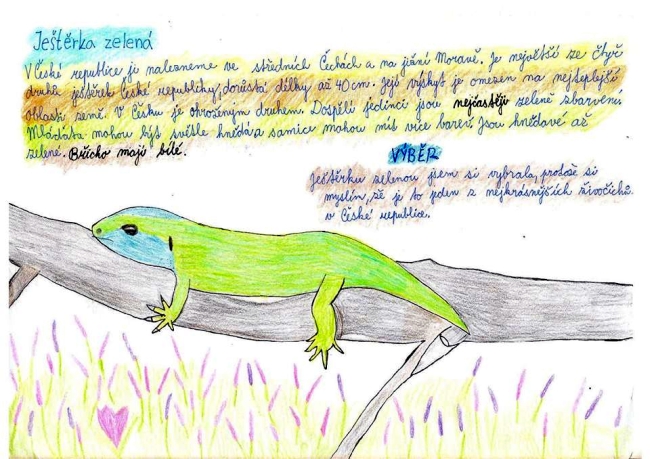 Ještěrka zelená
V České republice ji nalezneme ve středních Čechách a na jižní Moravě. Je největší ze čtyř
druhů ještěrek České republiky, dorůstá délky až 40cm. Její výskyt je omezen na nejteplejší
oblasti země. V Česku je ohroženým druhem. Dospělí jedinci jsou nejčastěji zeleně zbarvení.
Mláďata mohou být světle hnědá a samice mohou mít více barev. Jsou hnědavé až
zelené. Bříško mají bílé.
VÝBĚR
Ještěrku zelenou jsem si vybrala, protože si
myslím, že je to jeden z nejkrásnějších živočichů
v České republice.